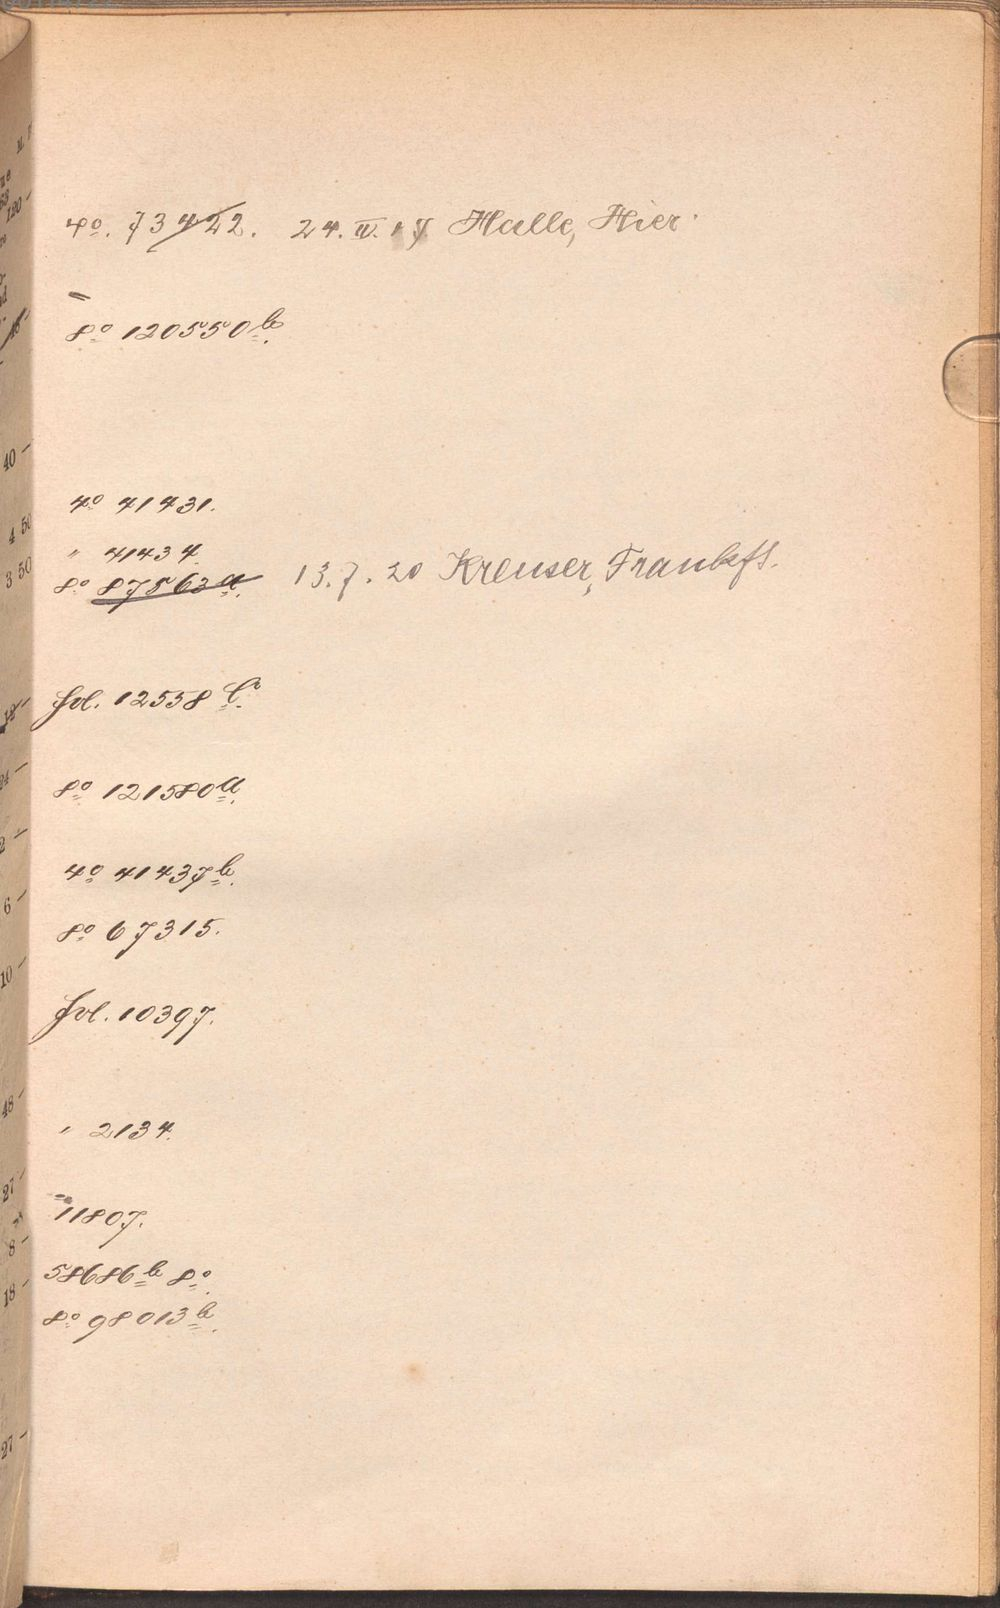 4º. 73422. 24. IV. 17 Halle, Hier.
8º 120550b.
4º 41431.
" 41434
8º 87563a. 13.7.20 Kreuser, Frankft.
fol. 12558 c.
8º 121580a.
4º 41437b.
8º 67315.
fol. 10397.
" 2134.
" 11807.
58686b 8º.
8º 98013b.